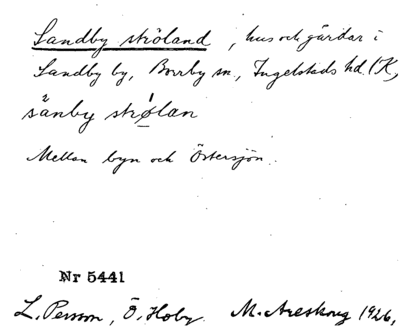 Sandby sköland, hus och gårdar i
Sandby by, Borrby sn., Ingelstads hd. (K,
sänby skølan
Mellan byn och Östersjön.
Nr 5441
L. Persson, Ö. Hoby. M. Areskoug 1926.